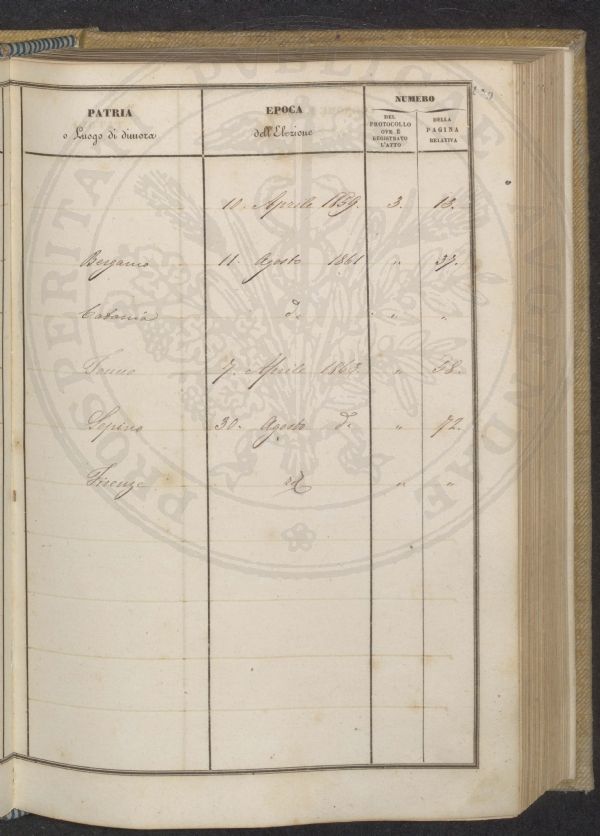 PATRIA EPOCA NUMERO
o Luogo di dimora dell'Elezione DEL PROTOCOLLO OVE È REGISTRATO L'ATTO DELLA PAGINA RELATIVA
10. Aprile 1859. 3. 13.
Bergamo 11. Agosto 1861 " 37.
Catania do " "
7. Aprile 1863. " 58.
Sepino 30. Agosto do " 72.
Firenze " "
PROSPERITATI PUBLICAE AUGENDAE